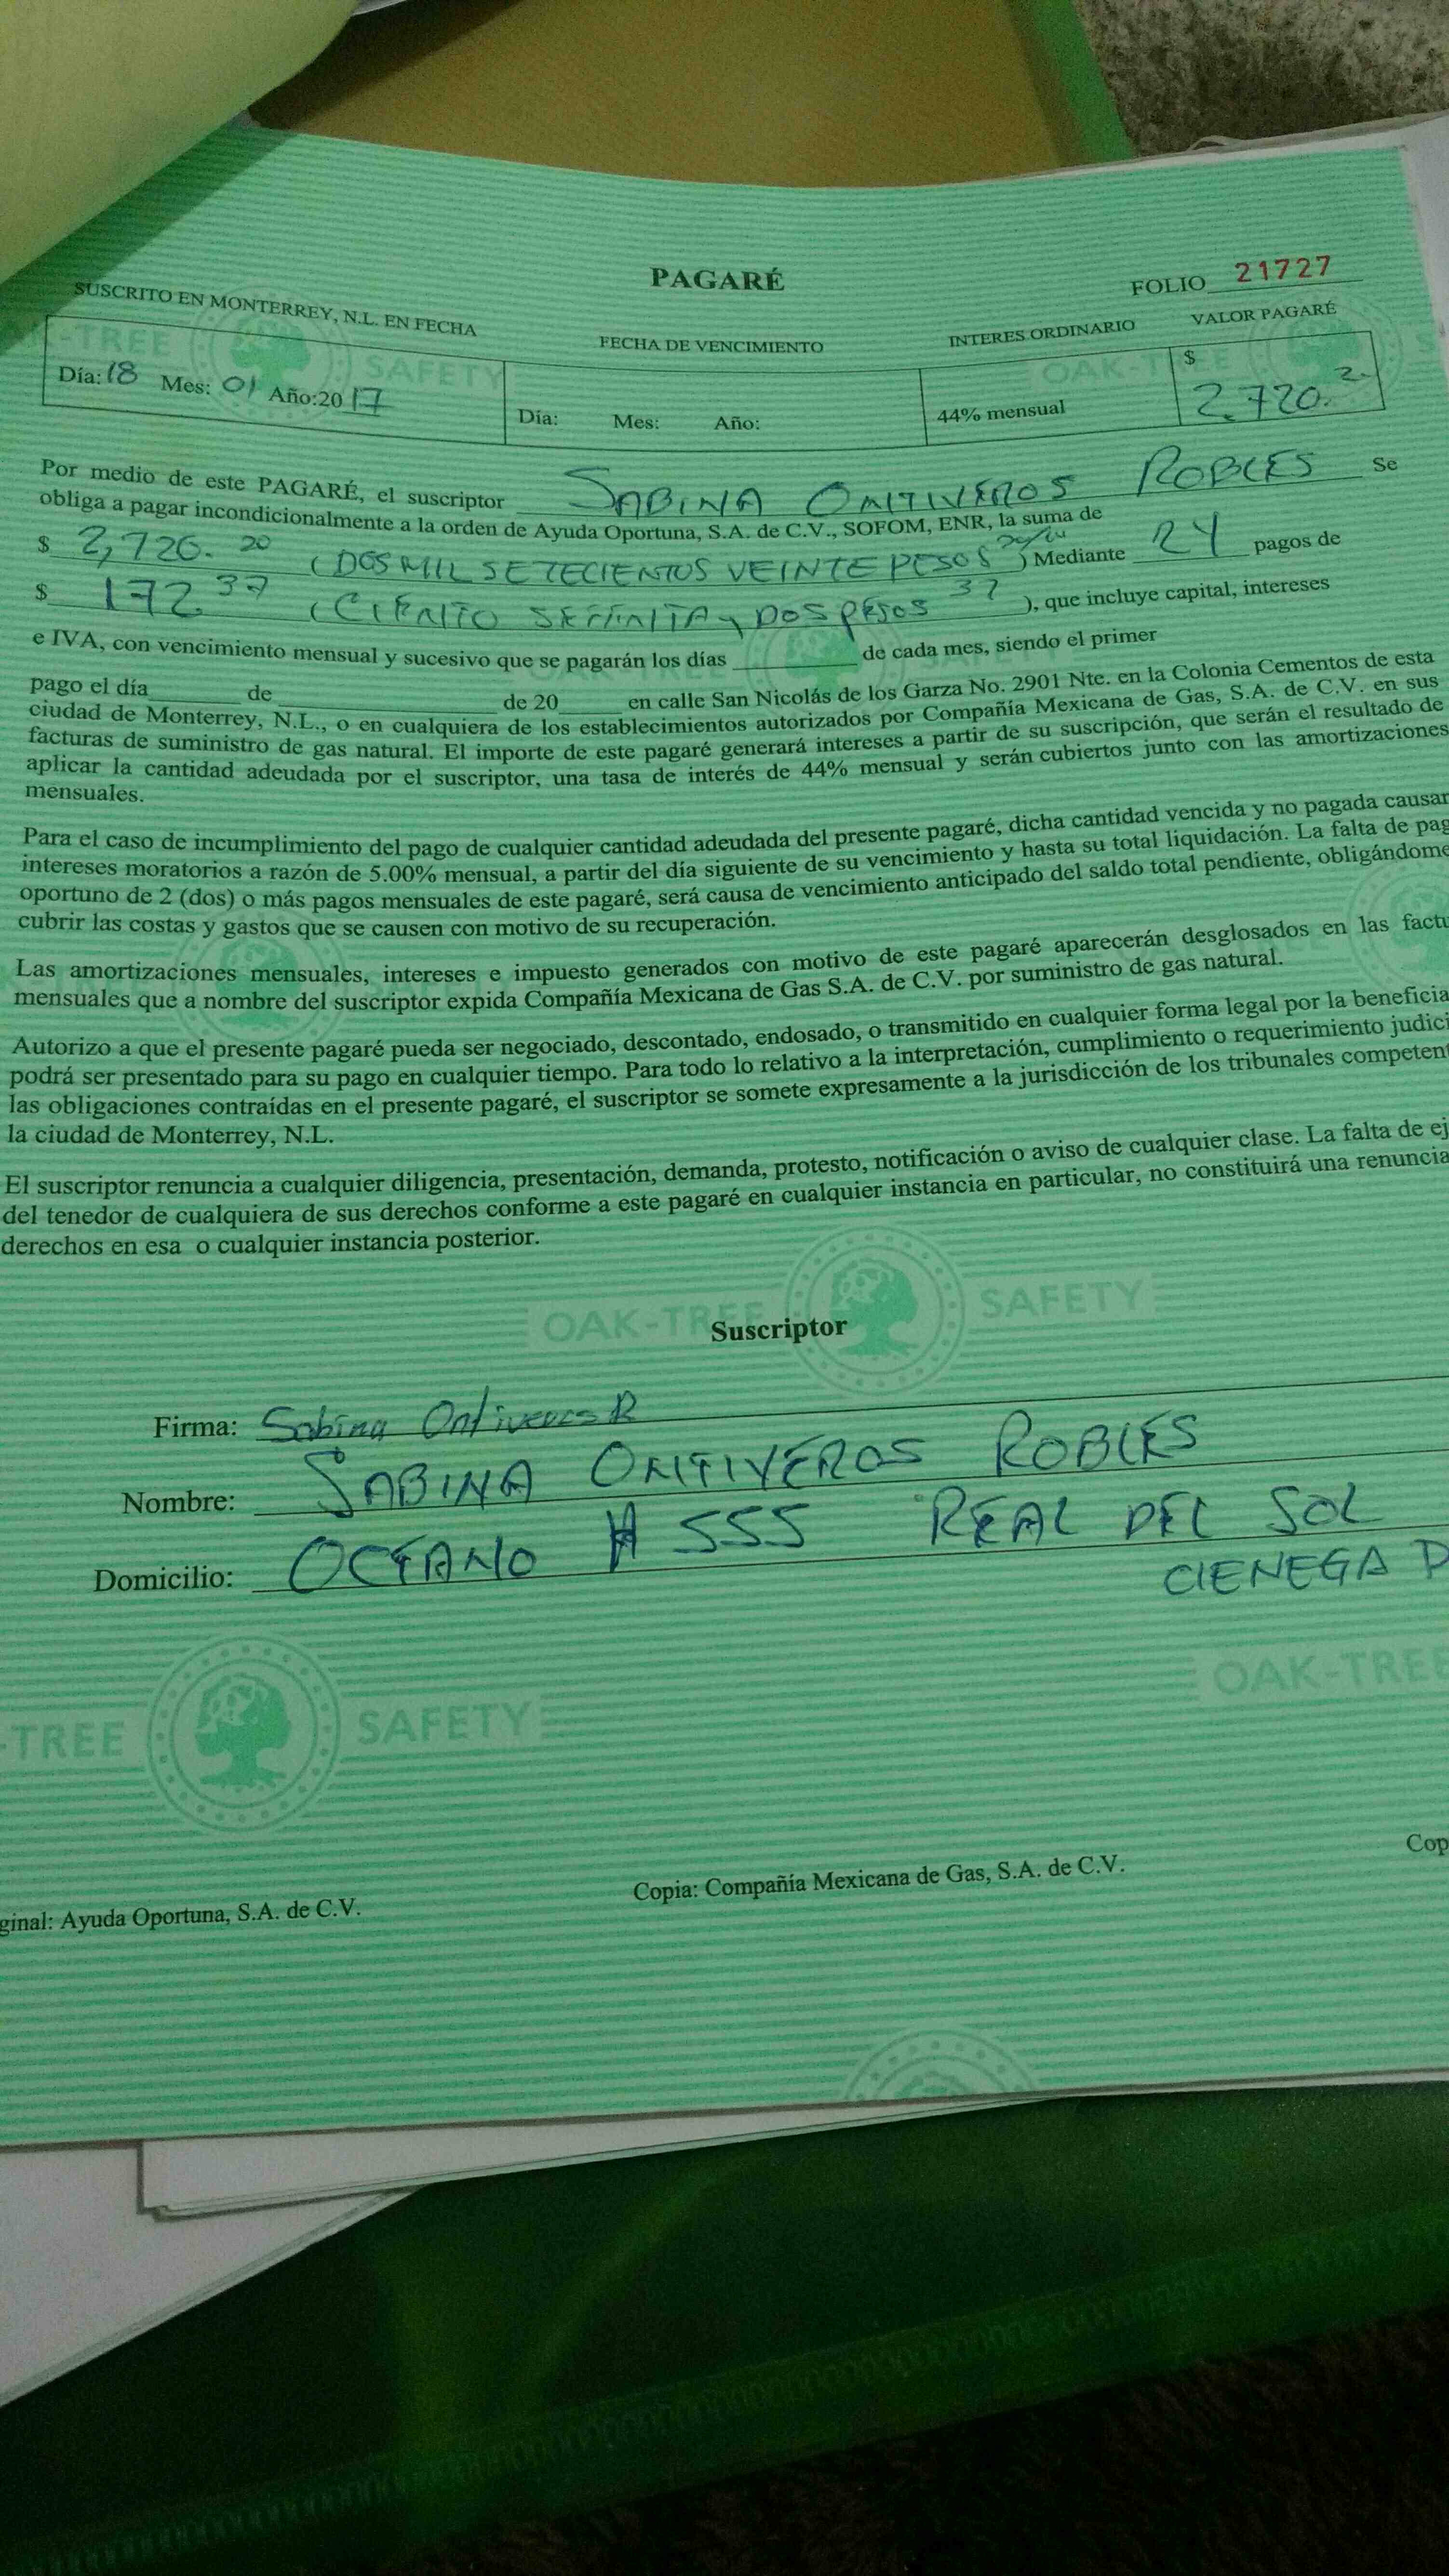 PAGARÉ
FOLIO 21727
SUSCRITO EN MONTERREY, N.L. EN FECHA
FECHA DE VENCIMIENTO
INTERES ORDINARIO
VALOR PAGARÉ
Día: 18 Mes: 01 Año:2017
Día: Mes: Año:
44% mensual
$ 2,720. 2.
Por medio de este PAGARÉ, el suscriptor SABINA ONTIVEROS ROBLES Se
obliga a pagar incondicionalmente a la orden de Ayuda Oportuna, S.A. de C.V., SOFOM, ENR, la suma de
$ 2,720. 20 (DOS MIL SETECIENTOS VEINTE PESOS ) Mediante 24 pagos de
$ 172. 37 (CIENTO SETENTA y DOS PESOS 37 ), que incluye capital, intereses
e IVA, con vencimiento mensual y sucesivo que se pagarán los días de cada mes, siendo el primer
pago el día de de 20 en calle San Nicolás de los Garza No. 2901 Nte. en la Colonia Cementos de esta
ciudad de Monterrey, N.L., o en cualquiera de los establecimientos autorizados por Compañía Mexicana de Gas, S.A. de C.V. en sus
facturas de suministro de gas natural. El importe de este pagaré generará intereses a partir de su suscripción, que serán el resultado de
aplicar la cantidad adeudada por el suscriptor, una tasa de interés de 44% mensual y serán cubiertos junto con las amortizaciones
mensuales.
Para el caso de incumplimiento del pago de cualquier cantidad adeudada del presente pagaré, dicha cantidad vencida y no pagada causar
intereses moratorios a razón de 5.00% mensual, a partir del día siguiente de su vencimiento y hasta su total liquidación. La falta de pag
oportuno de 2 (dos) o más pagos mensuales de este pagaré, será causa de vencimiento anticipado del saldo total pendiente, obligándome
cubrir las costas y gastos que se causen con motivo de su recuperación.
Las amortizaciones mensuales, intereses e impuesto generados con motivo de este pagaré aparecerán desglosados en las factu
mensuales que a nombre del suscriptor expida Compañía Mexicana de Gas S.A. de C.V. por suministro de gas natural.
Autorizo a que el presente pagaré pueda ser negociado, descontado, endosado, o transmitido en cualquier forma legal por la beneficia
podrá ser presentado para su pago en cualquier tiempo. Para todo lo relativo a la interpretación, cumplimiento o requerimiento judici
las obligaciones contraídas en el presente pagaré, el suscriptor se somete expresamente a la jurisdicción de los tribunales competent
la ciudad de Monterrey, N.L.
El suscriptor renuncia a cualquier diligencia, presentación, demanda, protesto, notificación o aviso de cualquier clase. La falta de ej
del tenedor de cualquiera de sus derechos conforme a este pagaré en cualquier instancia en particular, no constituirá una renuncia
derechos en esa o cualquier instancia posterior.
OAK-TREE SAFETY
Suscriptor
Firma: Sabina Ontiveros R
Nombre: SABINA ONTIVEROS ROBLES
Domicilio: OCEANO # 555 REAL DEL SOL
CIENEGA D
OAK-TREE
-TREE SAFETY
Cop
Copia: Compañía Mexicana de Gas, S.A. de C.V.
ginal: Ayuda Oportuna, S.A. de C.V.